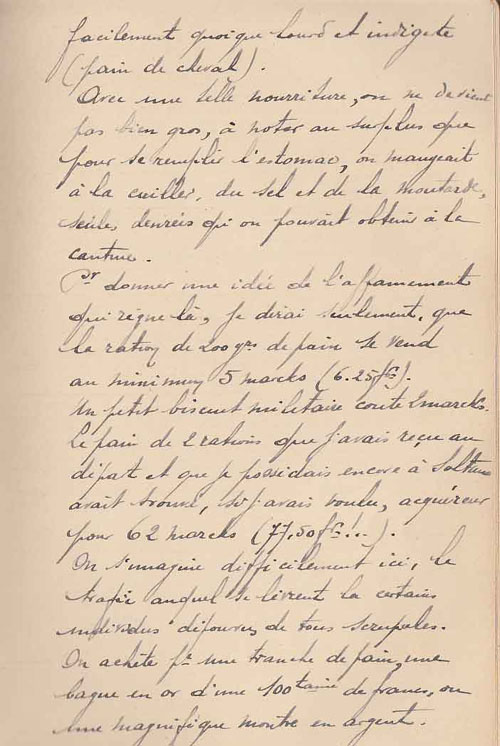 facilement quoique lourd et indigeste
(pain de cheval).
Avec une telle nourriture, on ne devient
pas bien gros, à noter au surplus que
pour se remplir l'estomac, on mangeait
à la cuiller, du sel et de la moutarde,
seules denrées qu'on pouvait obtenir à la
cantine.
Pr donner une idée de l'affamement
qui règne là, je dirai seulement, que
la ration de 200 grs de pain se vend
au minimum 5 marcks (6.25 fcs).
Un petit biscuit militaire coute 2 marcks.
Le pain de 2 rations que j'avais reçu au
départ et que je possédais encore à Soltau
avait trouvé, si j'avais voulu, acquéreur
pour 62 marcks (77,50 fcs!..).
On s'imagine difficilement ici, le
trafic auquel se livrent là certains
individus dépourvus de tous scrupules.
On achète pr une tranche de pain, une
bague en or d'une 100taine de francs, ou
une magnifique montre en argent.